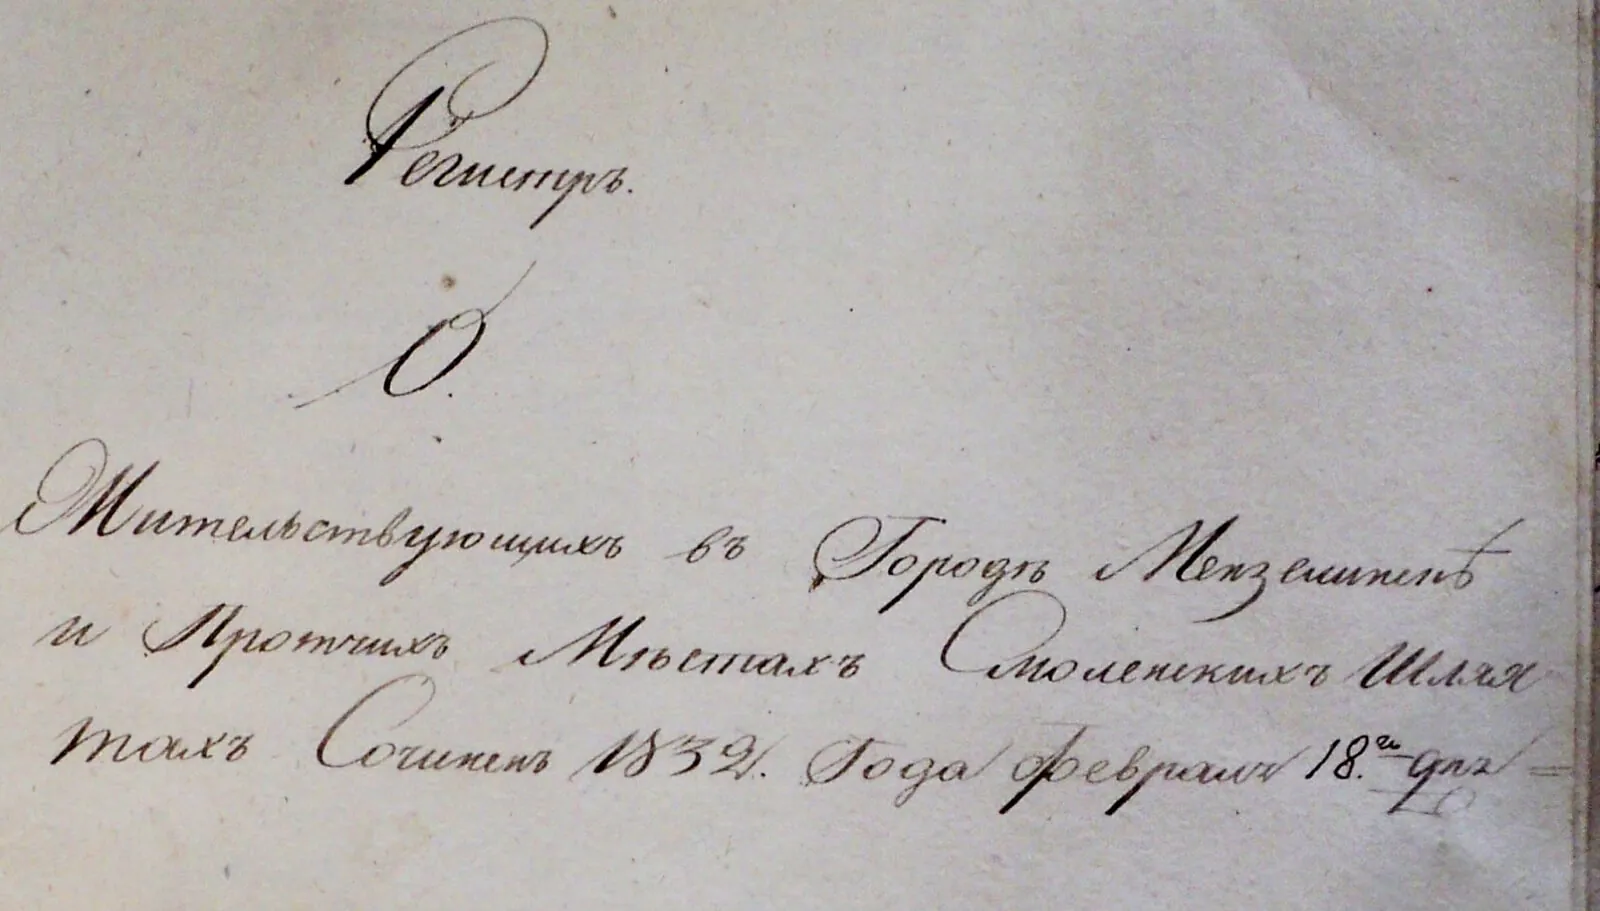 Регистръ.
О.
Жительствующихъ въ Городѣ Мензелинскѣ
и Протчихъ Мѣстахъ Смоленскихъ Шлях
тахъ Сочиненъ 1832. Года февраля 18.го дня =